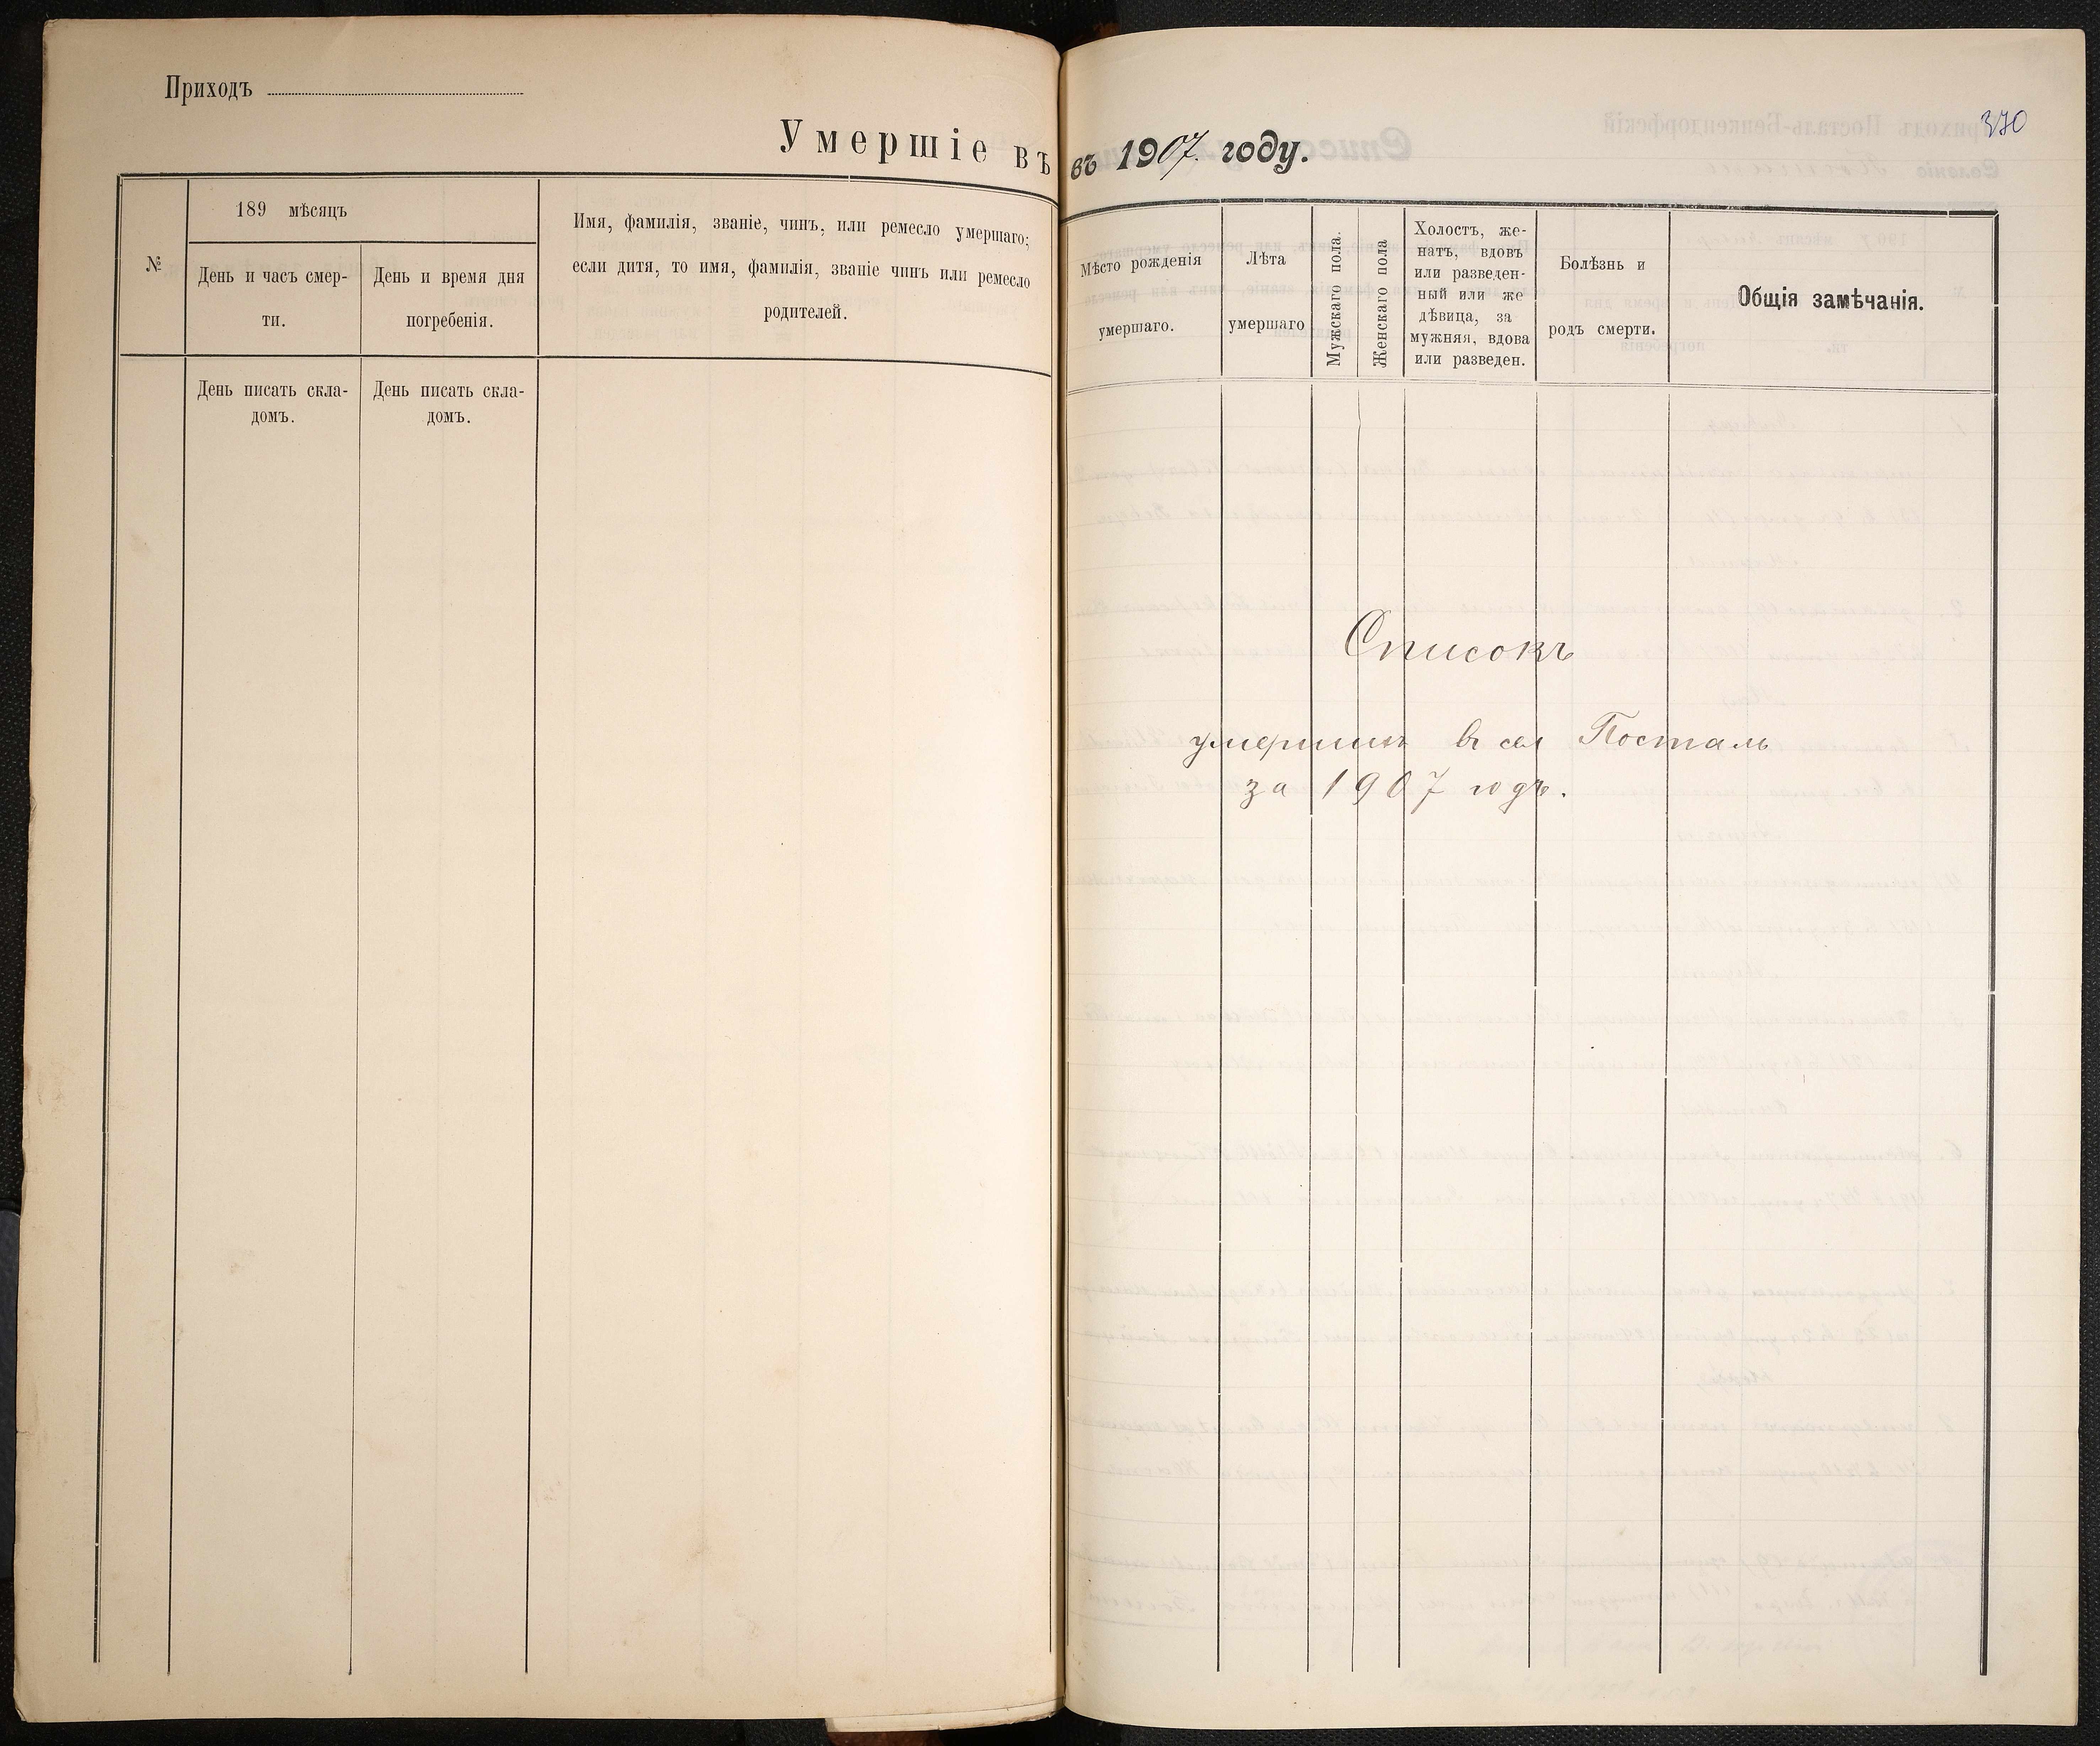 Приходъ
Умершіе въ
№
189 мѣсяцъ
День и часъ смер-
ти.
День и время дня
погребенія.
Имя, фамилія, званіе, чинъ, или ремесло умершаго;
если дитя, то имя, фамилія, званіе чинъ или ремесло
родителей.
День писать скла-
домъ.
День писать скла-
домъ.
370
въ 1907. году.
Мѣсто рожденія
умершаго.
Лѣта
умершаго
Мужскаго пола.
Женскаго пола
Холостъ, же-
натъ, вдовъ
или разведен-
ный или же
дѣвица, за
мужняя, вдова
или разведен.
Болѣзнь и
родъ смерти.
Общія замѣчанія.
Списокъ
умершихъ въ сел Посталь
за 1907 годъ.